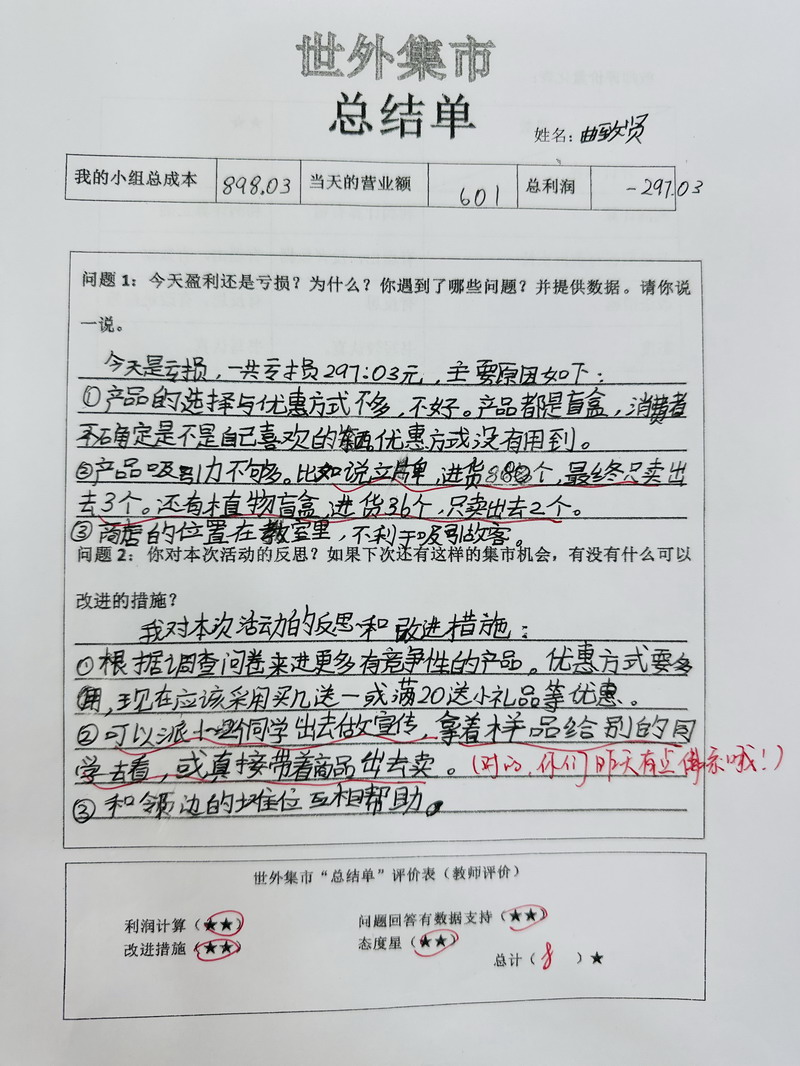 世外集市
总结单
姓名：曲致贤
我的小组总成本 898.03 当天的营业额 601 总利润 -297.03
问题1：今天盈利还是亏损？为什么？你遇到了哪些问题？并提供数据。请你说
一说。
今天是亏损，一共亏损297.03元，主要原因如下：
①产品的选择与优惠方式不多，不好。产品都是盲盒，消费者
不确定是不是自己喜欢的，优惠方式没有用到。
②产品吸引力不够多。比如说立牌，进货88个，最终只卖出
去3个。还有植物盲盒，进货36个，只卖出去2个。
③商店的位置在教室里，不利于吸引故客。
问题2：你对本次活动的反思？如果下次还有这样的集市机会，有没有什么可以
改进的措施？
我对本次活动的反思和改进措施：
①根据调查问卷来进更多有竞争性的产品。优惠方式要多
用，现在应该采用买几送一或满20送小礼品等优惠。
②可以派十个同学出去做宣传，拿着样品给别的同
学去看，或直接带着商品出去卖。（对的，你们昨天有点佛系哦！）
③和邻边的摊位互相帮助。
世外集市“总结单”评价表（教师评价）
利润计算（★★） 问题回答有数据支持（★★）
改进措施（★★） 态度星（★★）
总计（8）★